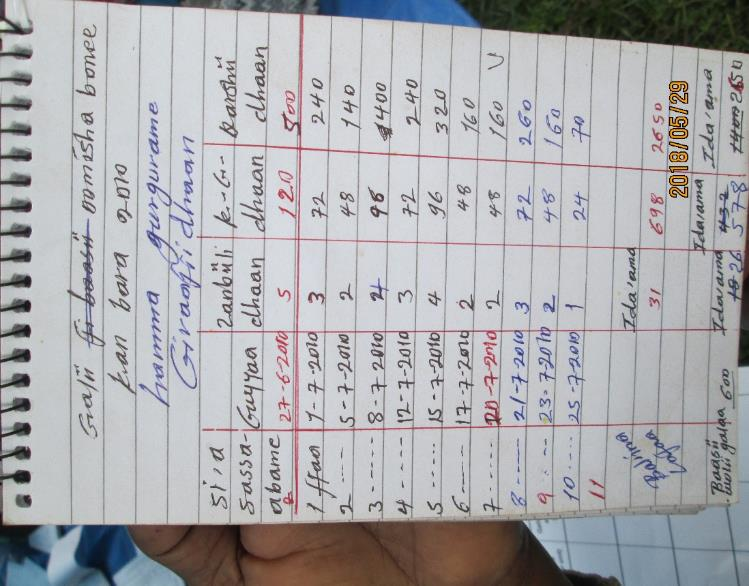 Galii fi baasii oomisha bonee
kan bara 2010
hamma gurgurame
Giraafii dhaan
Si'a Sassa- abame Guyyaa Zanbiili dhaan k.G. dhaan Qarshii dhaan
27-6-2010 5 120 500
1ffaa 1-7-2010 3 72 240
2 ----- 5-7-2010 2 48 140
3 ----- 8-7-2010 4 96 400
4 ----- 12-7-2010 3 72 240
5 ----- 15-7-2010 4 96 320
6 ----- 17-7-2010 2 48 160
7 ----- 20-7-2010 2 48 160
8 ----- 21-7-2010 3 72 260
9 ----- 23-7-2010 2 48 160
10 ----- 25-7-2010 1 24 70
11
Ida'ama
31 698 2650
Ida'ama Ida'ama
Baasii 600 Ida'ama 26 578
2018/05/29